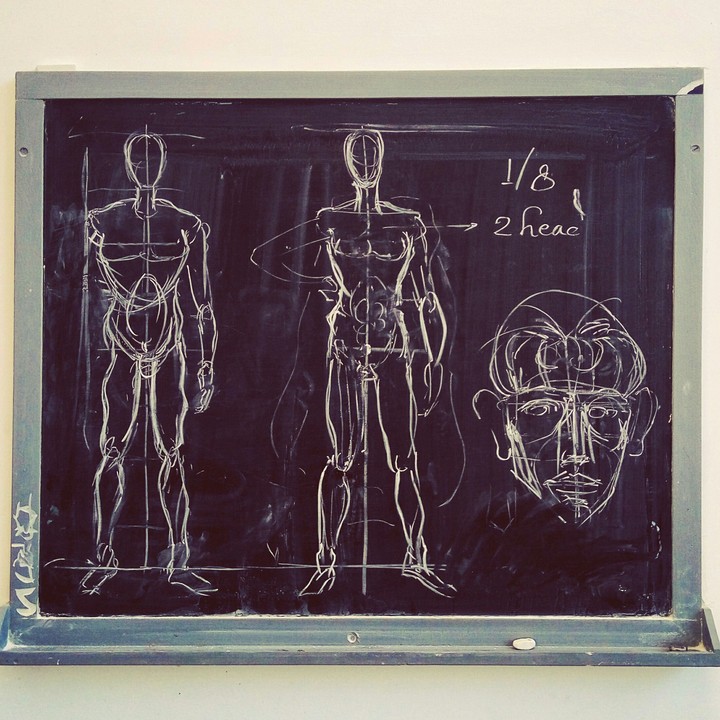 1/8
2 heac